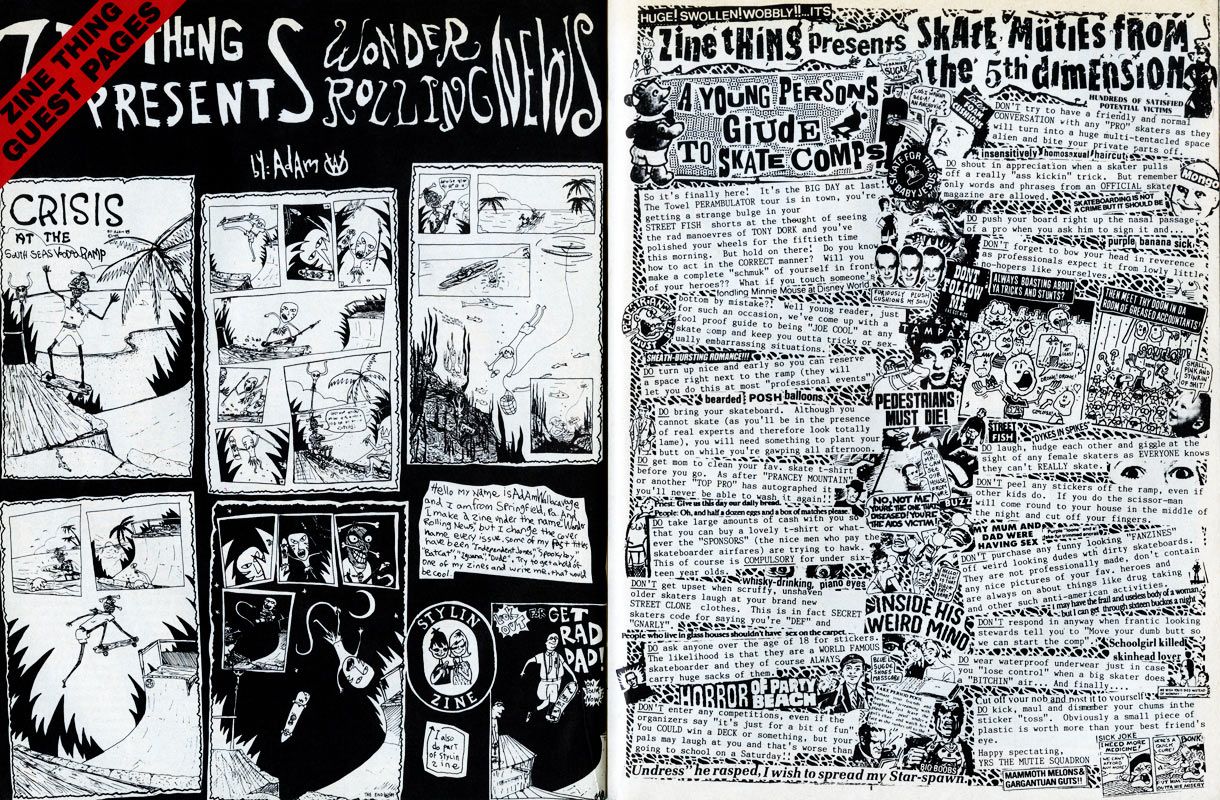 ZINE THING
GUEST PAGES
ZINE THING
PRESENTS
WONDER
ROLLING NEWS
by: AdAm
CRISIS
AT THE
SOUTH SEAS VOODOO RAMP
Hello my name is Adam Wallacavage
and I am from Springfield, Pa. And
I make a zine under the name Wonder
Rolling News, but I change the cover
name every issue. some of my past titles
have been "Independent Jones," "Spooky boy,"
"Batcat", "Iguana Dada". Try to get ahold of
one of my zines and write me, that would
be cool.
STYLIN
ZINE
I also
do part
of stylin
zine
GET
RAD
DAD!
THE END
HUGE! SWOLLEN! WOBBLY!!...ITS
Zine tHiNg presents SKAtE MüTiES FROM
the 5th diMENSiON
HUNDREDS OF SATISFIED
POTENTIAL VICTIMS
A YOUNG PERSONS
GiUDE
TO SKATE COMPS
So it's finally here! It's the BIG DAY at last!
The Tovel PERAMBULATOR tour is in town, you're
getting a strange bulge in your
STREET FISH shorts at the thought of seeing
the rad manoevres of TONY DORK and you've
polished your wheels for the fiftieth time
this morning. But hold on there! Do you know
how to act in the CORRECT manner? Will you
make a complete "schmuk" of yourself in front
of your heroes?? What if you touch someone's
fondling Minnie Mouse at Disney World
bottom by mistake?! Well young reader, just
for such an occasion, we've come up with a
fool proof guide to being "JOE COOL" at any
skate comp and keep you outta tricky or sex-
ually embarrassing situations.
SHEATH-BURSTING ROMANCE!!!
DO turn up nice and early so you can reserve
a space right next to the ramp (they will
let you do this at most "professional events")
bearded POSH balloons
DO bring your skateboard. Although you
cannot skate (as you'll be in the presence
of real experts and therefore look totally
lame), you will need something to plant your
butt on while you're gawping all afternoon.
DO get mom to clean your fav. skate t-shirt
before you go. As after "PRANCEY MOUNTAIN"
or another "TOP PRO" has autographed it
you'll never be able to wash it again!!
Priest: Give us this day our daily bread.
People: Oh, and half a dozen eggs and a box of matches please.
DO take large amounts of cash with you so
that you can buy a lovely t-shirt or what-
ever the "SPONSORS" (the nice men who pay the
skateboarder airfares) are trying to hawk.
This of course is COMPULSORY for under six-
teen year olds.
whisky-drinking, piano eyes
DON'T get upset when scruffy, unshaven
older skaters laugh at your brand new
STREET CLONE clothes. This is in fact SECRET
skaters code for saying you're "DEF" and
"GNARLY".
People who live in glass houses shouldn't have sex on the carpet.
DO ask anyone over the age of 18 for stickers.
The likelihood is that they are a WORLD FAMOUS
skateboarder and they of course ALWAYS
carry huge sacks of them.
HORROR OF PARTY
BEACH
DON'T enter any competitions, even if the
organizers say "it's just for a bit of fun".
You COULD win a DECK or something, but your
pals may laugh at you and that's worse than
going to school on a Saturday!!
"Undress" he rasped, I wish to spread my Star-spawn
SUGAR
FURIOUSLY PLUSH
CUSHIONS MY SON
DON'T
FOLLOW
ME
TAMPA
PEDESTRIANS
MUST DIE!
NO, NOT ME!
YOU'RE THE ONE THAT'S
DISEASED! YOU'RE
THE AIDS VICTIM!
BUZZ
INSIDE HIS
WEIRD MIND
BIG BOOBS
DON'T try to have a friendly and normal
CONVERSATION with any "PRO" skaters as they
will turn into a huge multi-tentacled space
alien and bite your private parts off.
insensitively homosexual haircut
DO shout in appreciation when a skater pulls
off a really "ass kickin" trick. But remember
only words and phrases from an OFFICIAL skate
magazine are allowed.
SKATEBOARDING IS NOT
A CRIME BUT IT SHOULD BE
DO push your board right up the nasal passage
of a pro when you ask him to sign it and...
purple banana sick
DON'T forget to bow your head in reverence
as professionals expect it from lowly little
no-hopers like yourselves.
ALWAYS BOASTING ABOUT
LA TRICKS AND STUNTS?
THEN MEET THY DOOM IN DA
ROOM OF GREASED ACCOUNTANTS!
SMALL,
PINK AND
STINKIN'
OF SHIT!
STREET
FISH
"DYKES IN SPIKES"
DO laugh, nudge each other and giggle at the
sight of any female skaters as EVERYONE knows
they can't REALLY skate.
DON'T peel any stickers off the ramp, even if
other kids do. If you do the scissor-man
will come round to your house in the middle of
the night and cut off your fingers.
MY MUM AND
DAD WERE
HAVING SEX
DON'T purchase any funny looking "FANZINES"
off weird looking dudes wth dirty skateboards.
They are not professionally made, don't contain
any nice pictures of your fav. heroes and
are always on about things like drug taking
and other such anti-american activities.
I may have the frail and useless body of a woman,
but I can get through sixteen buckos a night.
DON'T respond in anyway when frantic looking
stewards tell you to "Move your dumb butt so
we can start the comp".
Schoolgirl killed
skinhead lover
DO wear waterproof underwear just in case
you "lose control" when a big skater does
a "BITCHIN" air... And finally....
Cut off your nob and post it to yourself
DO kick, maul and dismember your chums in the
sticker "toss". Obviously a small piece of
plastic is worth more than your best friend's
eye.
Happy spectating,
YRS THE MUTIE SQUADRON
MAMMOTH MELONS &
GARGANTUAN GUTS!!
SICK JOKE
I NEED
MORE
MEDICINE!
HERE'S A
QUICK
CURE!
BONK